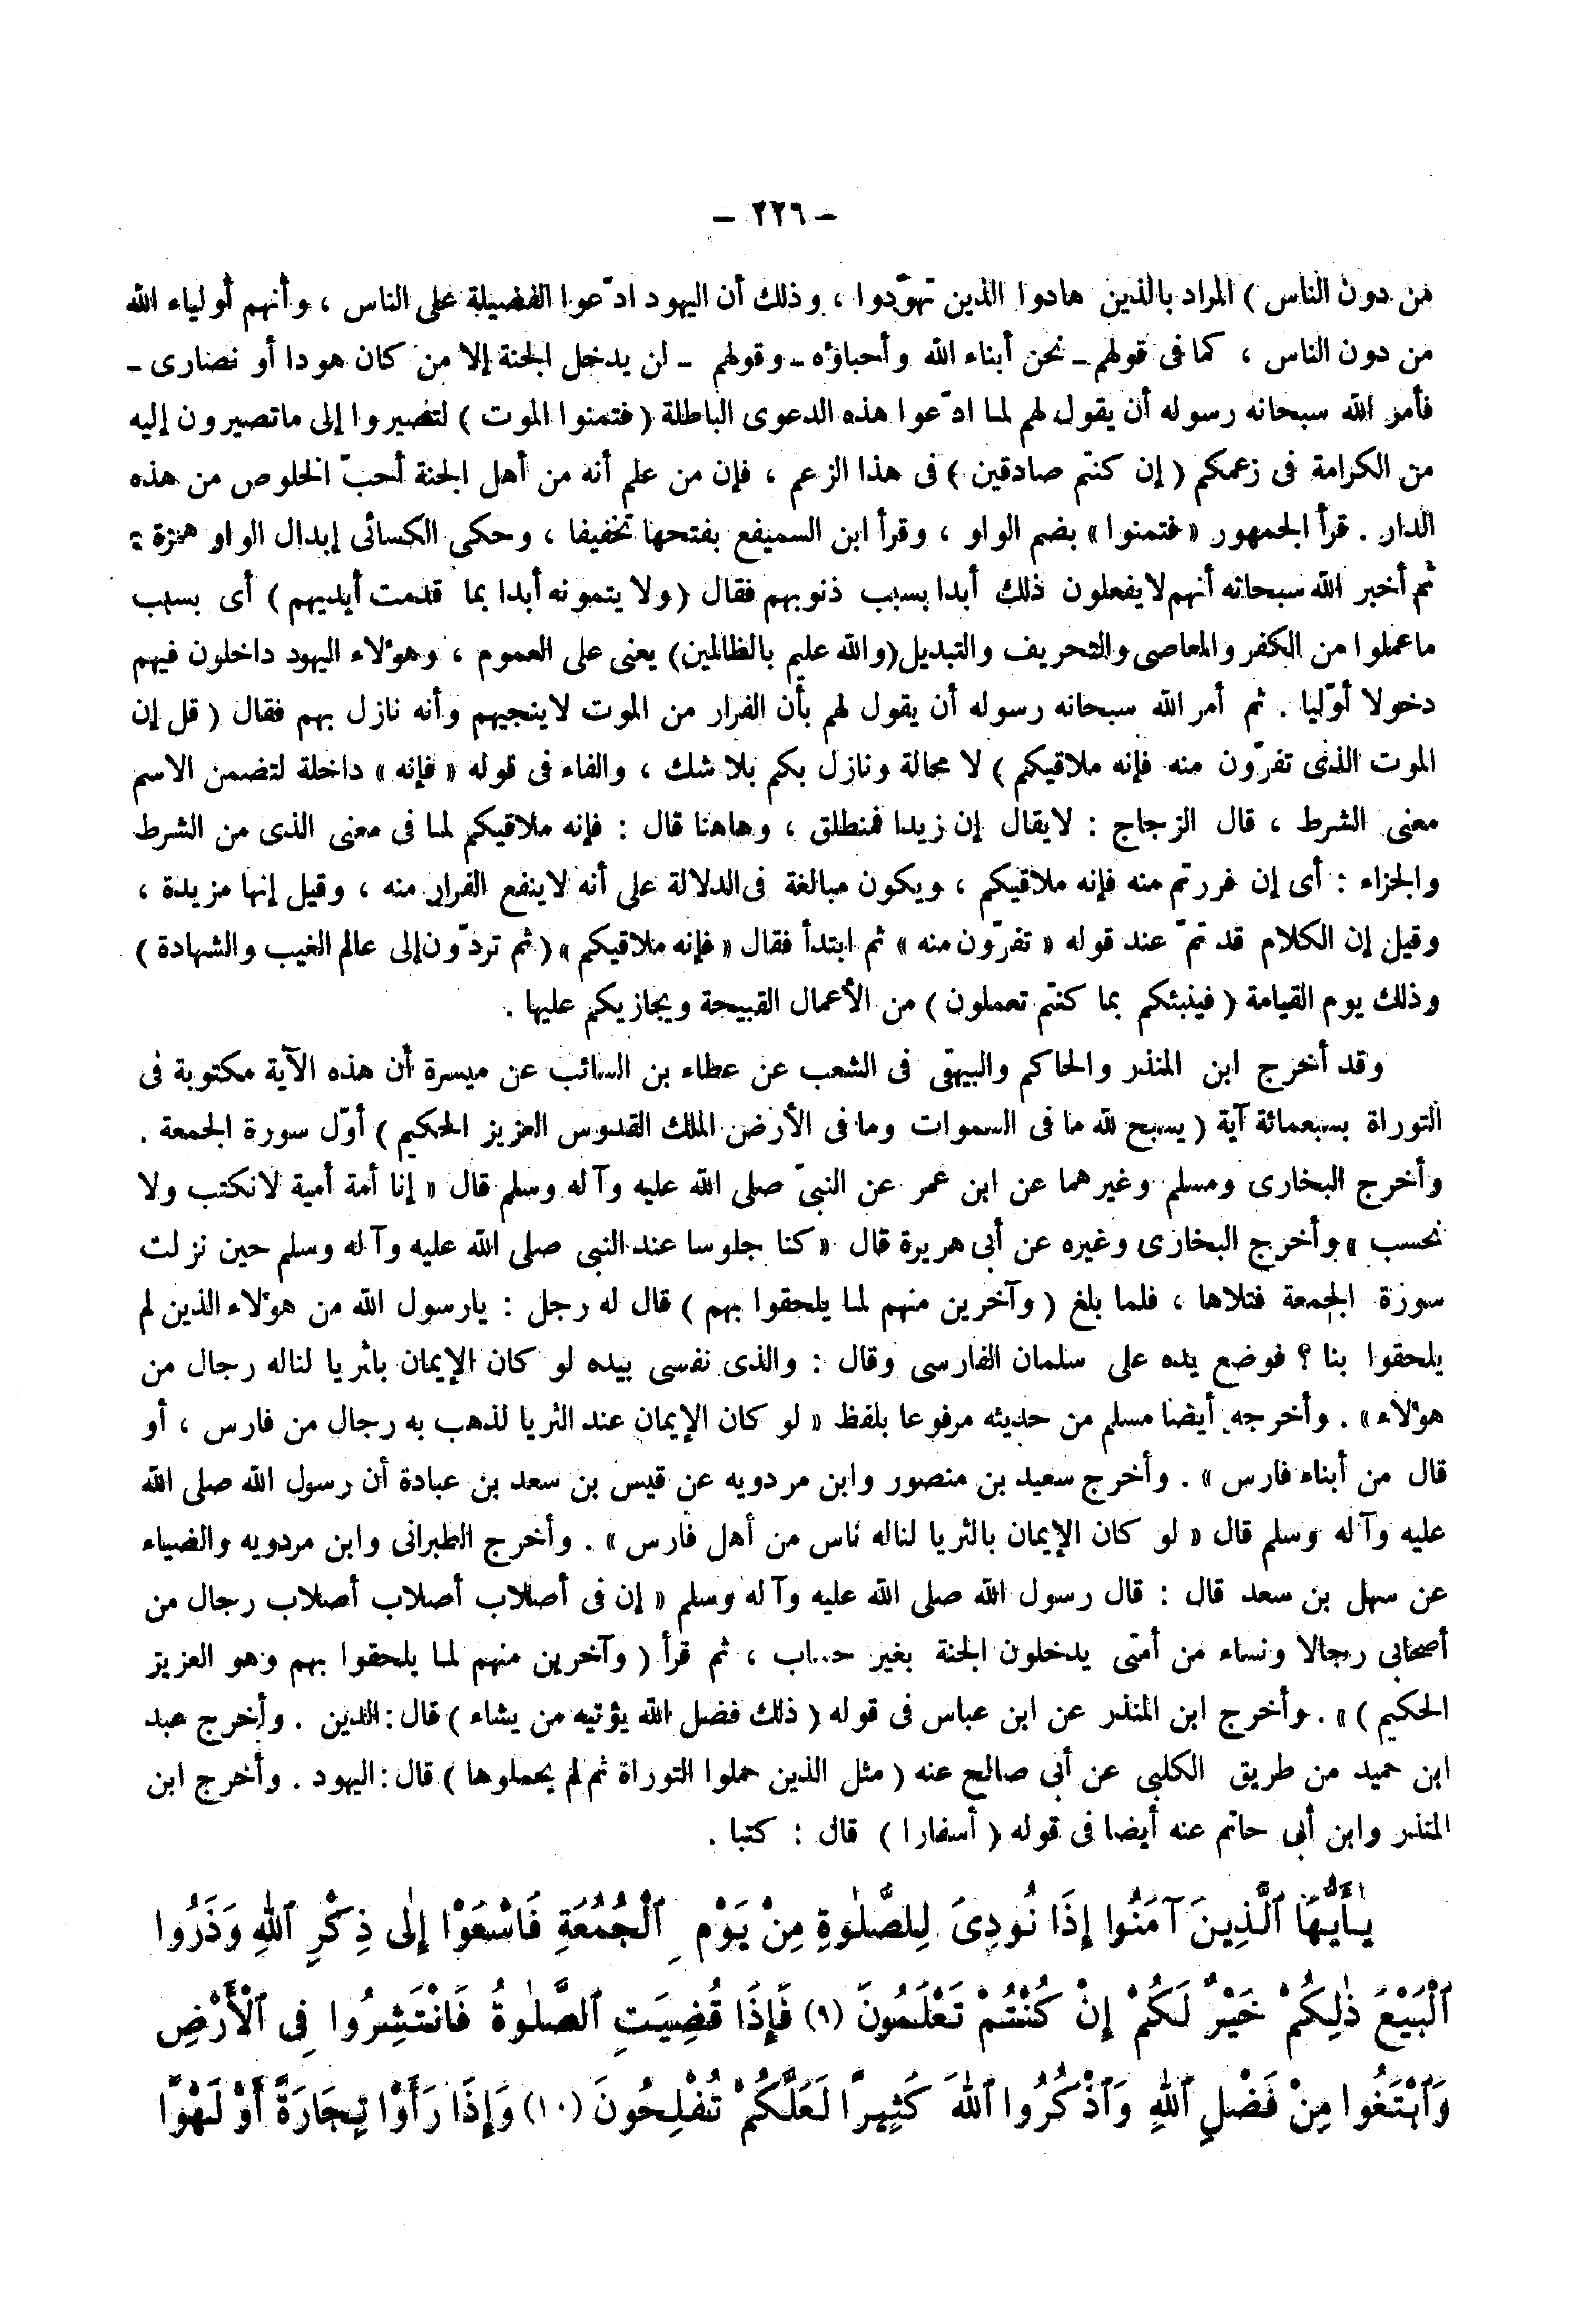 - ٢٢٦ -
من دون الناس ) المراد بالذين هادوا الذين تهوّدوا ، وذلك أن اليهود ادّعوا الفضيلة على الناس ، وأنهم أولياء الله
من دون الناس ، كما فى قولهم ـ نحن أبناء الله وأحباؤه ـ وقولهم ـ لن يدخل الجنة إلا من كان هودا أو نصارى ـ
فأمر الله سبحانه رسوله أن يقول لهم لما ادّعوا هذه الدعوى الباطلة ( فتمنوا الموت ) لتصيروا إلى ماتصيرون إليه
من الكرامة فى زعمكم ( إن كنتم صادقين ) فى هذا الزعم ، فإن من علم أنه من أهل الجنة أحبّ الخلوص من هذه
الدار . قرأ الجمهور « فتمنوا » بضم الواو ، وقرأ ابن السميفع بفتحها تخفيفا ، وحكى الكسائى إبدال الواو همزة :
ثم أخبر الله سبحانه أنهم لايفعلون ذلك أبدا بسبب ذنوبهم فقال ( ولا يتمونه أبدا بما قدمت أيديهم ) أى بسبب
ماعملوا من الكفر والمعاصى والتحريف والتبديل (والله عليم بالظالمين) يعنى على العموم ، وهؤلاء اليهود داخلون فيهم
دخولا أوّليا . ثم أمر الله سبحانه رسوله أن يقول لهم بأن الفرار من الموت لاينجيهم وأنه نازل بهم فقال ( قل إن
الموت الذى تفرّون منه فإنه ملاقيكم ) لا محالة ونازل بكم بلا شك ، والفاء فى قوله « فإنه » داخلة لتضمن الاسم
معنى الشرط ، قال الزجاج : لايقال إن زيدا فمنطلق ، وهاهنا قال : فإنه ملاقيكم لما فى معنى الذى من الشرط
والجزاء : أى إن فررتم منه فإنه ملاقيكم ، ويكون مبالغة فى الدلالة على أنه لاينفع الفرار منه ، وقيل إنها مزيدة ،
وقيل إن الكلام قد تمّ عند قوله « تفرّون منه » ثم ابتدأ فقال « فإنه ملاقيكم » ( ثم تردّون إلى عالم الغيب والشهادة )
وذلك يوم القيامة ( فينبئكم بما كنتم تعملون ) من الأعمال القبيحة ويجازيكم عليها .
وقد أخرج ابن المنذر والحاكم والبيهقى فى الشعب عن عطاء بن السائب عن ميسرة أن هذه الآية مكتوبة فى
التوراة بسبعمائة آية ( يسبح لله ما فى السموات وما فى الأرض الملك القدوس العزيز الحكيم ) أوّل سورة الجمعة .
وأخرج البخارى ومسلم وغيرهما عن ابن عمر عن النبىّ صلى الله عليه وآله وسلم قال « إنا أمة أمية لانكتب ولا
نحسب » وأخرج البخارى وغيره عن أبى هريرة قال « كنا جلوسا عند النبى صلى الله عليه وآله وسلم حين نزلت
سورة الجمعة فتلاها ، فلما بلغ ( وآخرين منهم لما يلحقوا بهم ) قال له رجل : يارسول الله من هؤلاء الذين لم
يلحقوا بنا ؟ فوضع يده على سلمان الفارسى وقال : والذى نفسى بيده لو كان الإيمان بالثريا لناله رجال من
هؤلاء » . وأخرجه أيضا مسلم من حديثه مرفوعا بلفظ « لو كان الإيمان عند الثريا لذهب به رجال من فارس ، أو
قال من أبناء فارس » . وأخرج سعيد بن منصور وابن مردويه عن قيس بن سعد بن عبادة أن رسول الله صلى الله
عليه وآله وسلم قال « لو كان الإيمان بالثريا لناله ناس من أهل فارس » . وأخرج الطبرانى وابن مردويه والضياء
عن سهل بن سعد قال : قال رسول الله صلى الله عليه وآله وسلم « إن فى أصلاب أصلاب أصلاب رجال من
أصحابى رجالا ونساء من أمتى يدخلون الجنة بغير حساب ، ثم قرأ ( وآخرين منهم لما يلحقوا بهم وهو العزيز
الحكيم ) » . وأخرج ابن المنذر عن ابن عباس فى قوله ( ذلك فضل الله يؤتيه من يشاء ) قال : الدين . وأخرج عبد
ابن حميد من طريق الكلبى عن أبى صالح عنه ( مثل الذين حملوا التوراة ثم لم يحملوها ) قال : اليهود . وأخرج ابن
المنذر وابن أبى حاتم عنه أيضا فى قوله ( أسفارا ) قال : كتبا .
يَٰأَيُّهَا ٱلَّذِينَ آمَنُوا إِذَا نُودِىَ لِلصَّلَوٰةِ مِنْ يَوْمِ ٱلْجُمُعَةِ فَاسْعَوْا إِلَى ذِكْرِ ٱللهِ وَذَرُوا
ٱلْبَيْعَ ذَٰلِكُمْ خَيْرٌ لَكُمْ إِنْ كُنْتُمْ تَعْلَمُونَ (٩) فَإِذَا قُضِيَتِ ٱلصَّلَوٰةُ فَانْتَشِرُوا فِى ٱلْأَرْضِ
وَٱبْتَغُوا مِنْ فَضْلِ ٱللهِ وَٱذْكُرُوا ٱللهَ كَثِيرًا لَعَلَّكُمْ تُفْلِحُونَ (١٠) وَإِذَا رَأَوْا تِجَارَةً أَوْ لَهْوًا